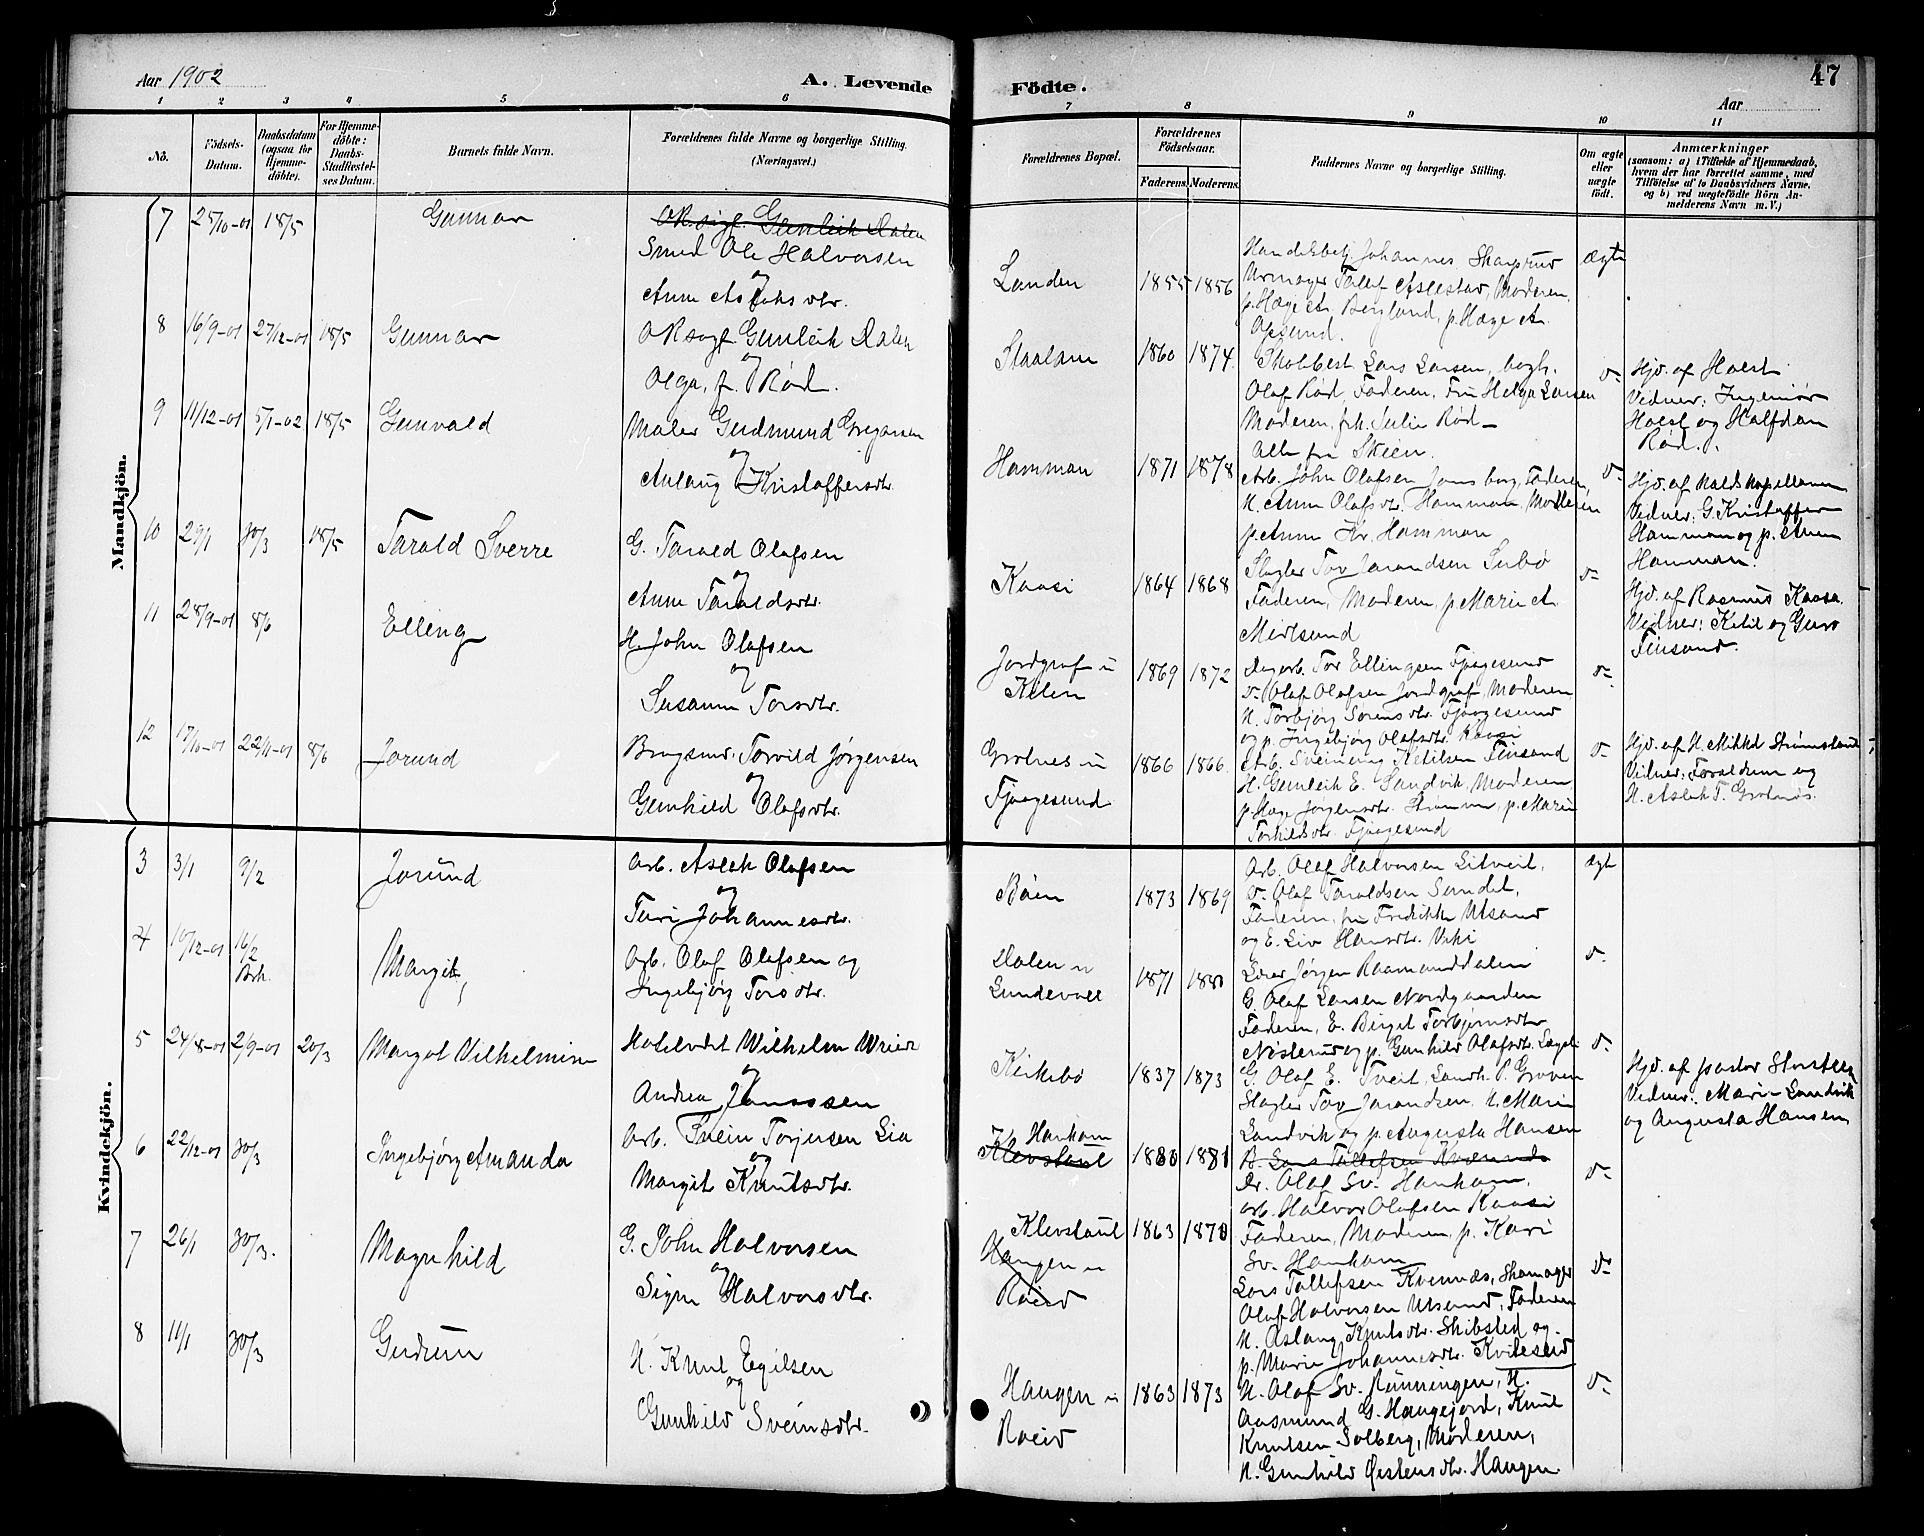 Aar 1902
A. Levende
Födte.
47
Aar
1 2 3 4 5 6 7 8 9 10 11
No.
Födsels-
Datum.
Daabsdatum
(ogsaa for
Hjemme-
döbte).
For Hjemme-
döbte:
Daabs-
Stadfæstel-
ses Datum.
Barnets fulde Navn.
Forældrenes fulde Navne og borgerlige Stilling.
(Næringsvei.)
Forældrenes Bopæl.
Forældrenes
Födselsaar.
Faderens
Moderens.
Faddernes Navne og borgerlige Stilling.
Om ægte
eller
uægte
födt.
Anmærkninger
(saasom: a) i Tilfælde af Hjemmedaab,
hvem der har forrettet samme, med
Tilföielse af to Daabsvidners Navne,
og b) ved uegtefödte Börn An-
melderens Navn m. V.)
Mandkjön.
7 25/10-01 18/5 Gunnar
OR.sagf. Gunleik Dalen
Smed Ole Halvorsen
og
Anne Aslaks dtr.
Landen 1855 1856
Handelsbetj. Johannes Skarprud
Urmager Tallef Aslestad, Moderen
p. Hæge A. Berglund, p. Hæge A.
Opsund.
ægte
8 16/9-01 27/12-01 18/5 Gunnar
ORsagf Gunleik Dalen
og
Olga, f. Rød.
Staalane 1860 1874
Skolebest. Lars Larsen, bogh.
Olaf Rød, Faderen, Fru Helga Larsen
Moderen, frk. Julie Rød
Alle fra Skien.
Hjd. af Holst
Vidner: Ingeniør
Holst og Halfdan
Rød.
9 11/12-01 5/1-02 18/5 Gunvald
Maler Gudmund Gregarsen
og
Anlaug Kristoffersdtr.
Hamman 1871 1878
Arb. John Olafsen Jonsborg, Faderen,
K. Anne Olafsdtr. Hamman, Moderen
p. Anne Kr. Hamman
Hjd. af Kaldskapellanen
Vidner: G. Kristoffer
Hamman og p. Anne
Hamman.
10 29/1 30/3 18/5 Tarald Sverre
G. Tarald Olafsen
og
Anne Taraldsdtr.
Kaasi 1864 1868
Slagter Tov Jarandsen Lerbø
Faderen, Moderen, p. Marie A.
Midtsund
Hjd. af Rasmus Kaasa
Vidner: Ketil og Guro
Finsand.
11 28/9-01 8/6 Elling
H. John Olafsen
og
Susanne Torsdtr.
Jordgraf u
Kilen 1869 1872
Dagarb. Tor Ellingsen Fjaagesund
d. Olaf Olafsen Jordgraf, Moderen
K. Torbjørg Sørensdtr. Fjaagesund
og p. Ingebjørg Olafsdtr. Kaasi
12 17/10-01 22/11-01 8/6 Jorund
Brugsm. Torvild Jørgensen
og
Gunhild Olafsdtr.
Grotnes u
Fjaagesund 1866 1866
Arb. Sveinung Ketilsen Finsand
H. Gunleik E. Sandvik, Moderen
p. Hæge Jørgensdtr. Strømme, p. Marie
Torkildsdtr. Fjaagesund
Hjd. af H. Mikkel Strømstand
Vidner: Foraldrene og
H. Aslak T. Grotnes.
Kvindekjön.
3 3/1 9/2 Jorund
Arb. Aslak Olafsen
og
Turi Johannesdtr.
Bøen 1873 1869
Arb. Olaf Halvorsen Litveit,
d. Olaf Taraldsen Sundet,
Faderen, fru Fredrikke Utsund
og E. Liv Hansdtr. Viki
ægt
4 10/12-01 16/2 Brk. Margit,
Arb. Olaf Olafsen og
Ingebjørg Torsdtr.
Dalen u
Lundevall 1871 1880
Lærer Jørgen Raamunddalen
G. Olaf Larsen Nordgaarden
Faderen, E. Birgit Torbjørnsdtr
Nosterud og p. Gunhild Olafsdtr. Lægeli
5 24/8-01 2/9-01 20/3 Margot Vilhelmine
Hotelvært Wilhelm Wriedt
og
Andrea Jonassen
Kirkebø 1837 1873
G. Olaf E. Tveit, Landh. P. Groven
Slagter Tov Jarandsen. K. Marie
Sandvik og p. Augusta Hansen
Hjd. af pastor Storsteen
Vidner: Marie Sandvik
og Augusta Hansen
6 22/12-01 30/3 Ingebjørg Amanda
Arb. Svein Torjusen Lia
og
Margit Knutsdtr.
u Hankam
Klevstaul 1880 1881
G. Lars Tallefsen Kvennes
Dr. Olaf Sv. Hankam,
Arb. Halvor Olafsen Kaasi
Faderen, Moderen, p. Kari
Sv. Hankam
7 26/1 30/3. Magnhild
G. John Halvorsen
og
Signe Halvorsdtr.
Klevstaul
Haugen u
Roeid 1863 1870
Lars Tallefsen Kvennes, Skomager
Olaf Halvorsen Utsund, Faderen
K. Aslaug Knutsdtr. Skibsted og
p. Marie Johannesdtr. Kvitesid
8 11/1 30/3 Gudrun
H. Knut Egilsen
og
Gunhild Sveinsdtr.
Haugen u
Roeid 1863 1873
H. Olaf Sv. Rønningen, H.
Aasmund G. Haugejord, Knut
Knutsen Solberg, Moderen,
K. Gunhild Øistensdtr. Haugen